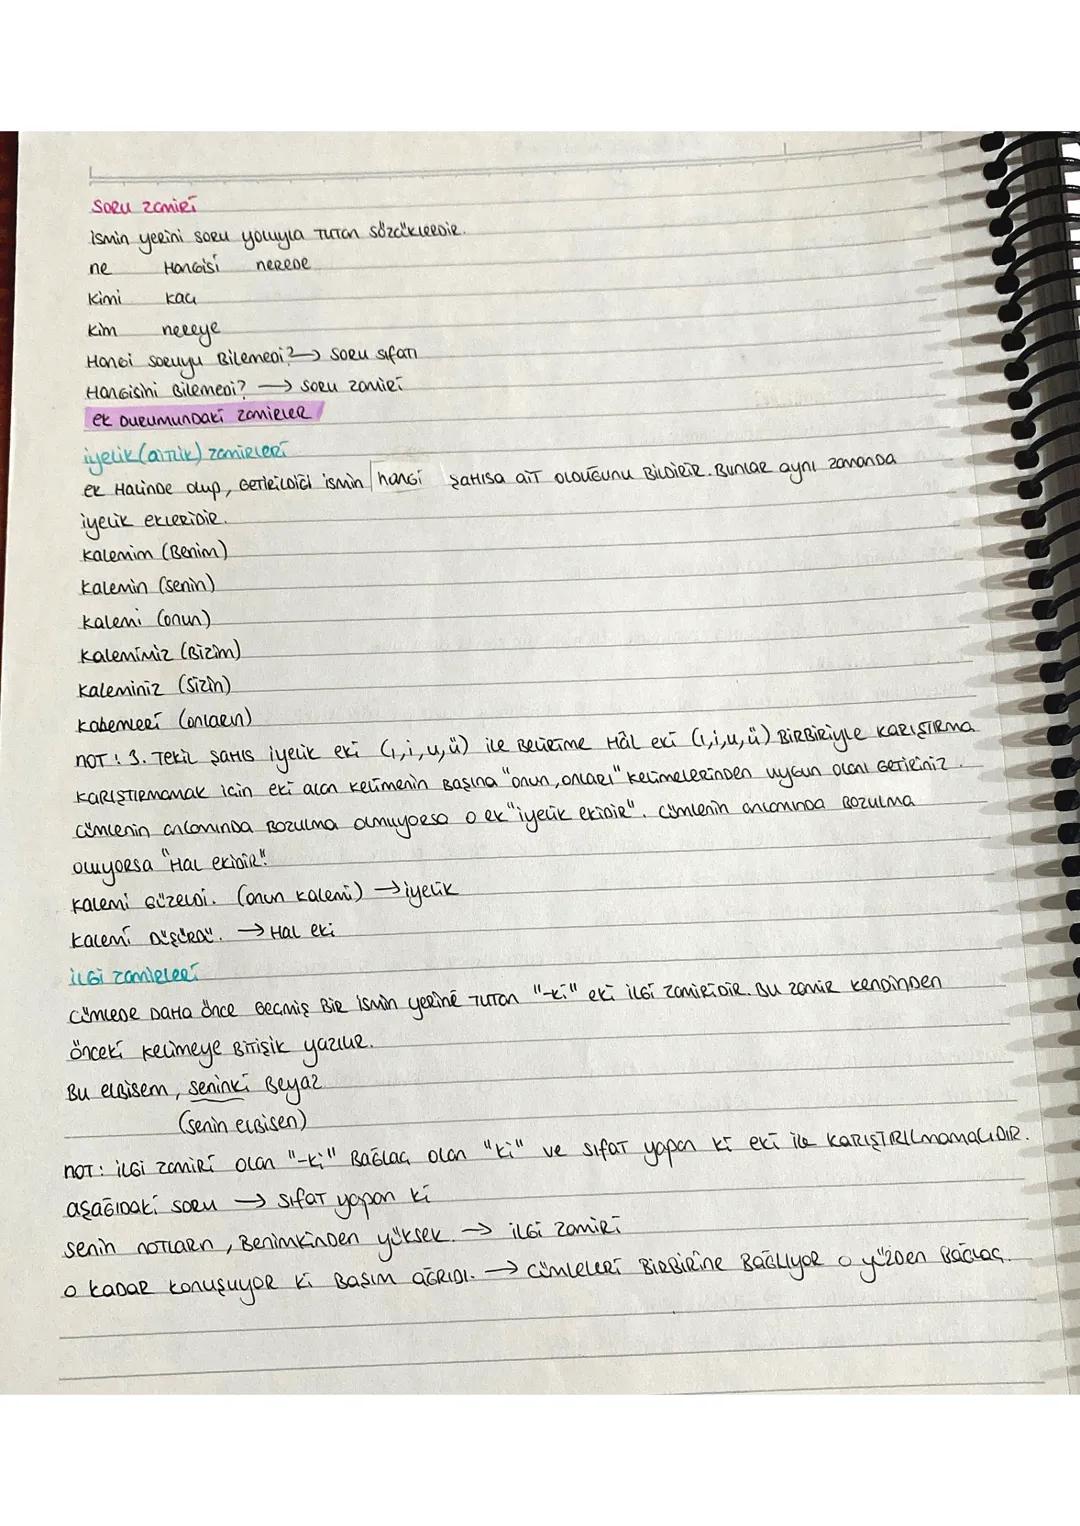 Soru zamiri
ismin yerini soru yoluyla tutan sözcüklerdir.
ne Hangisi nerede
kimi kaçı
kim nereye
Hangi soruyu Bilemedi? → soru sıfatı
Hangisini Bilemedi? → soru zamiri
ek Durumundaki zamirler
iyelik (aitlik) zamirleri
ek Halinde olup, Getirildiği ismin hangi şahısa ait olduğunu Bildirir. Bunlar aynı zamanda
iyelik ekleridir.
kalemim (Benim)
kalemin (senin)
kalemi (onun)
kalemimiz (Bizim)
kaleminiz (sizin)
kalemleri (onların)
NOT: 3. Tekil şahıs iyelik eki (ı,i,u,ü) ile Belirtme Hâl eki (ı,i,u,ü) BirBiriyle karıştırma
karıştırmamak için eki alan kelimenin Başına "onun, onları" kelimelerinden uygun olanı Getiriniz.
cümlenin anlamında Bozulma olmuyorsa o ek "iyelik ekidir". cümlenin anlamında Bozulma
oluyorsa "Hal ekidir".
kalemi Güzeldi. (onun kalemi) → iyelik
kalemi Düşürdü. → Hal eki
ilgi zamirleri
cümlede Daha önce Geçmiş Bir ismin yerine tutan "-ki" eki ilgi zamiridir. Bu zamir kendinden
önceki kelimeye Bitişik yazılır.
Bu elbisem, seninki Beyaz
(senin elbisen)
NOT: ilgi zamiri olan "-ki" Bağlaç olan "ki" ve sıfat yapan ki eki ile karıştırılmamalıdır.
aşağıdaki soru → sıfat yapan ki
senin notların, Benimkinden yüksek. → ilgi zamiri
o kadar konuşuyor ki Başım ağrıdı. → cümleleri BirBirine Bağlıyor o yüzden Bağlaç.